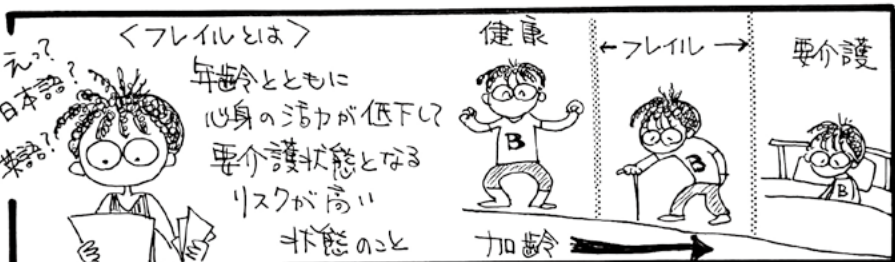 えっ?
日本語?
英語?
<フレイルとは>
年齢とともに
心身の活力が低下して
要介護状態となる
リスクが高い
状態のこと
健康
←フレイル→
要介護
B
B
B
加齢